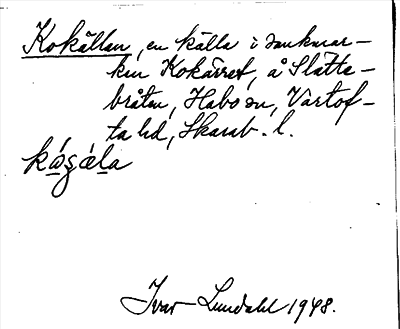 Kokällan, en källa i sankmar-
ken Kokärret, å Slätte-
bråten, Habo sn, Vartof-
ta hd, Skarab. l.
kágæla
Ivar Lundahl 1948.